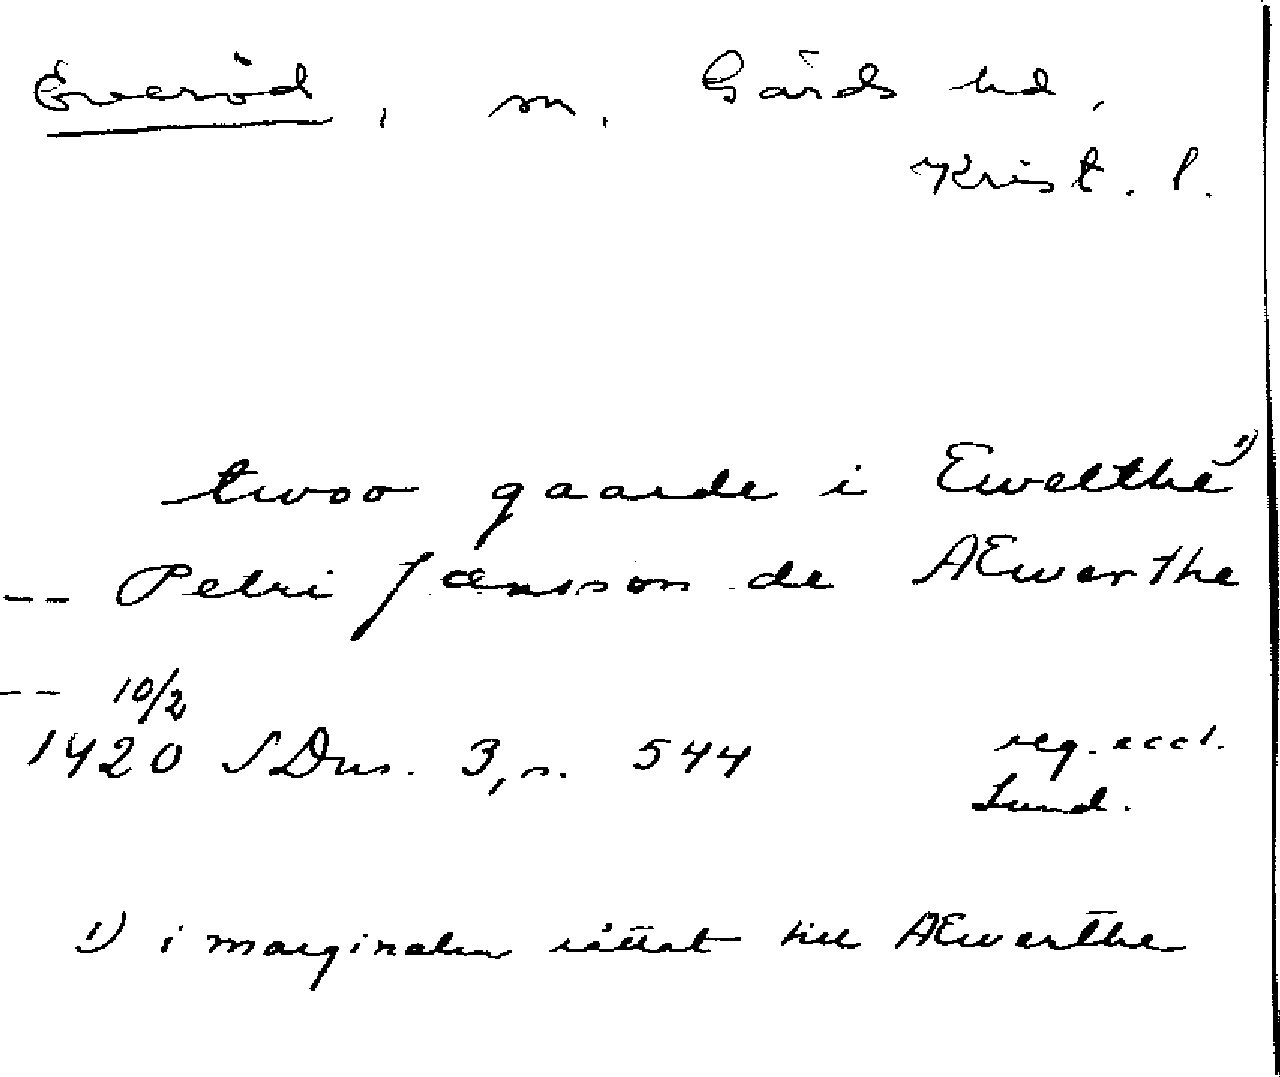 Everöd, sn. Gärds hd,
Krist. l.
twoo gaarde i Ewelthe 1)
-- Petri Jænsson de ÆEwerthe
-- 10/2
1420 SDns. 3, s. 544 reg. eccl.
Lund.
1) i marginalen rättat till ÆEwerthe